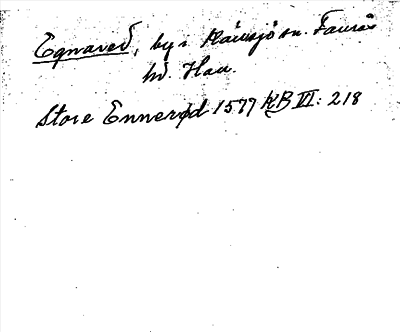 Egnared, by i Plöusjö sn. Fauraås
hd. Hall.
Store Ennerød 1577 KB VI: 218